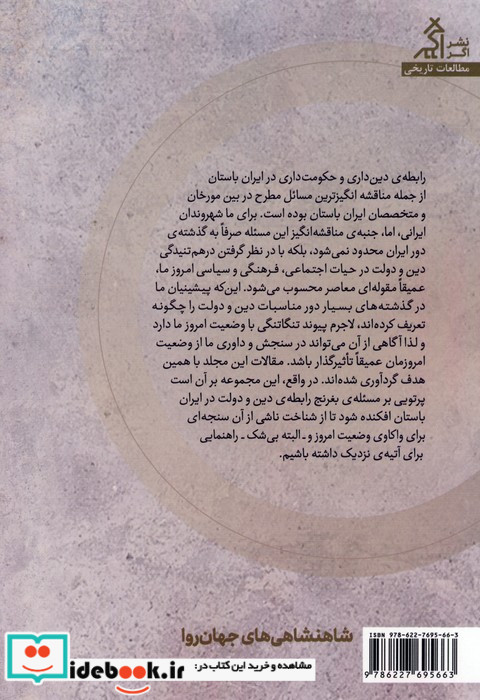 نشر
اگر
مطالعات تاریخی
رابطه‌ی دین‌داری و حکومت‌داری در ایران باستان
از جمله مناقشه انگیزترین مسائل مطرح در بین مورخان
و متخصصان ایران باستان بوده است. برای ما شهروندان
ایرانی، اما، جنبه‌ی مناقشه‌انگیز این مسئله صرفاً به گذشته‌ی
دور ایران محدود نمی‌شود، بلکه با در نظر گرفتن درهم‌تنیدگی
دین و دولت در حیات اجتماعی، فرهنگی و سیاسی امروز ما،
عمیقاً مقوله‌ای معاصر محسوب می‌شود. این‌که پیشینیان ما
در گذشته‌های بسیار دور مناسبات دین و دولت را چگونه
تعریف کرده‌اند، لاجرم پیوند تنگاتنگی با وضعیت امروز ما دارد
و لذا آگاهی از آن می‌تواند در سنجش و داوری ما از وضعیت
امروزمان عمیقاً تأثیرگذار باشد. مقالات این مجلد با همین
هدف گردآوری شده‌اند. در واقع، این مجموعه بر آن است
پرتویی بر مسئله‌ی بغرنج رابطه‌ی دین و دولت در ایران
باستان افکنده شود تا از شناخت ناشی از آن سنجه‌ای
برای واکاوی وضعیت امروز و ـ البته بی‌شک ـ راهنمایی
برای آتیه‌ی نزدیک داشته باشیم.
شاهنشاهی‌های جهان‌روا
ISBN 978-622-7695-66-3
9 786227 695663
iranicaidebook.ir
مشاهده و خرید این کتاب در: